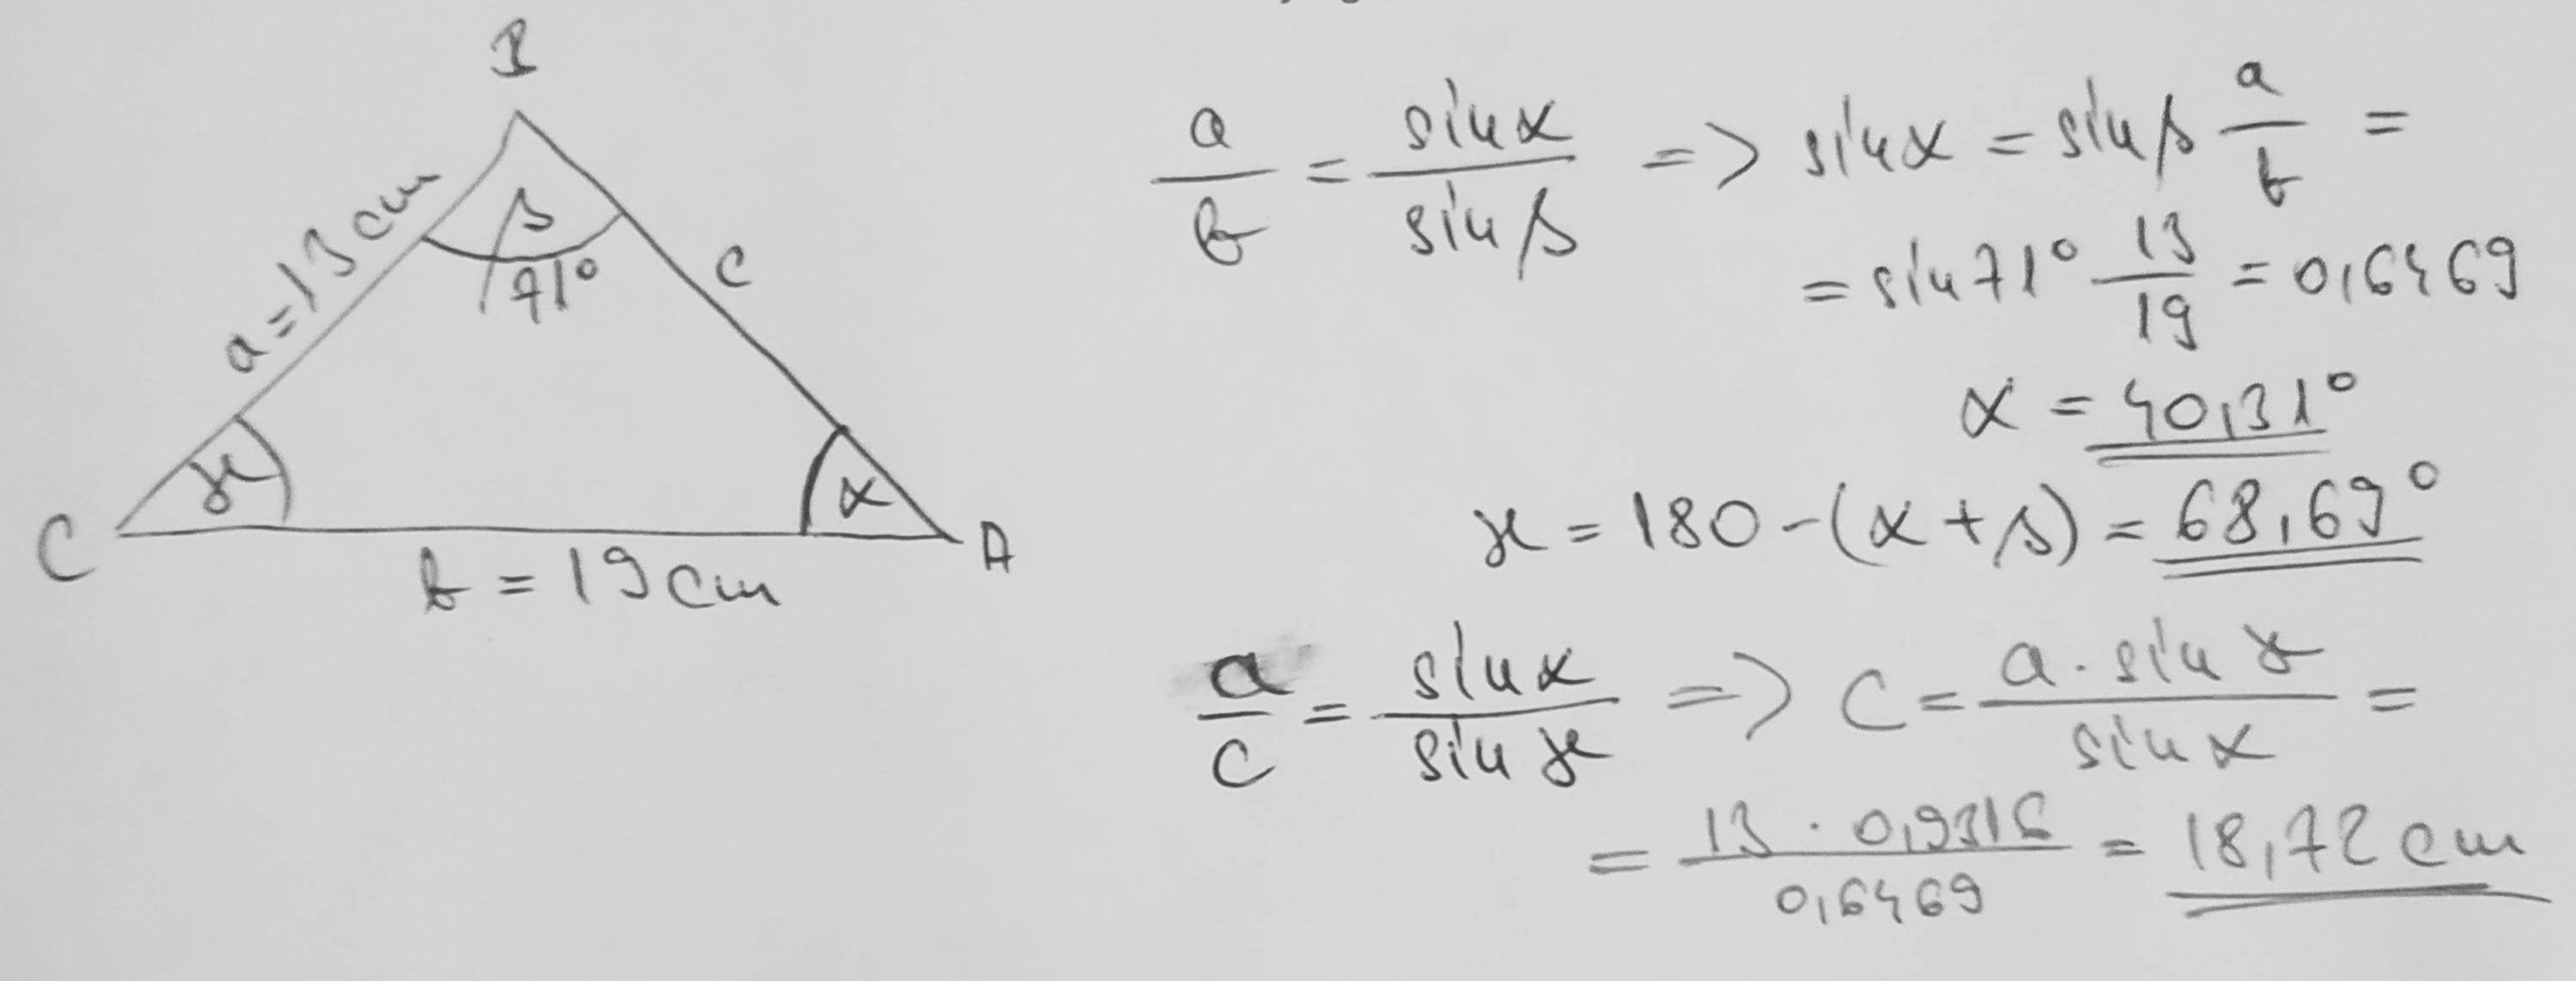 B
a = 13 cm
β
71°
c
γ
α
C
A
b = 19 cm
a/b = sin α / sin β => sin α = sin β a/b =
= sin 71° 13/19 = 0,6469
α = 40,31°
γ = 180 - (α + β) = 68,69°
a/c = sin α / sin γ => c = a · sin γ / sin α =
= 13 · 0,9316 / 0,6469 = 18,72 cm